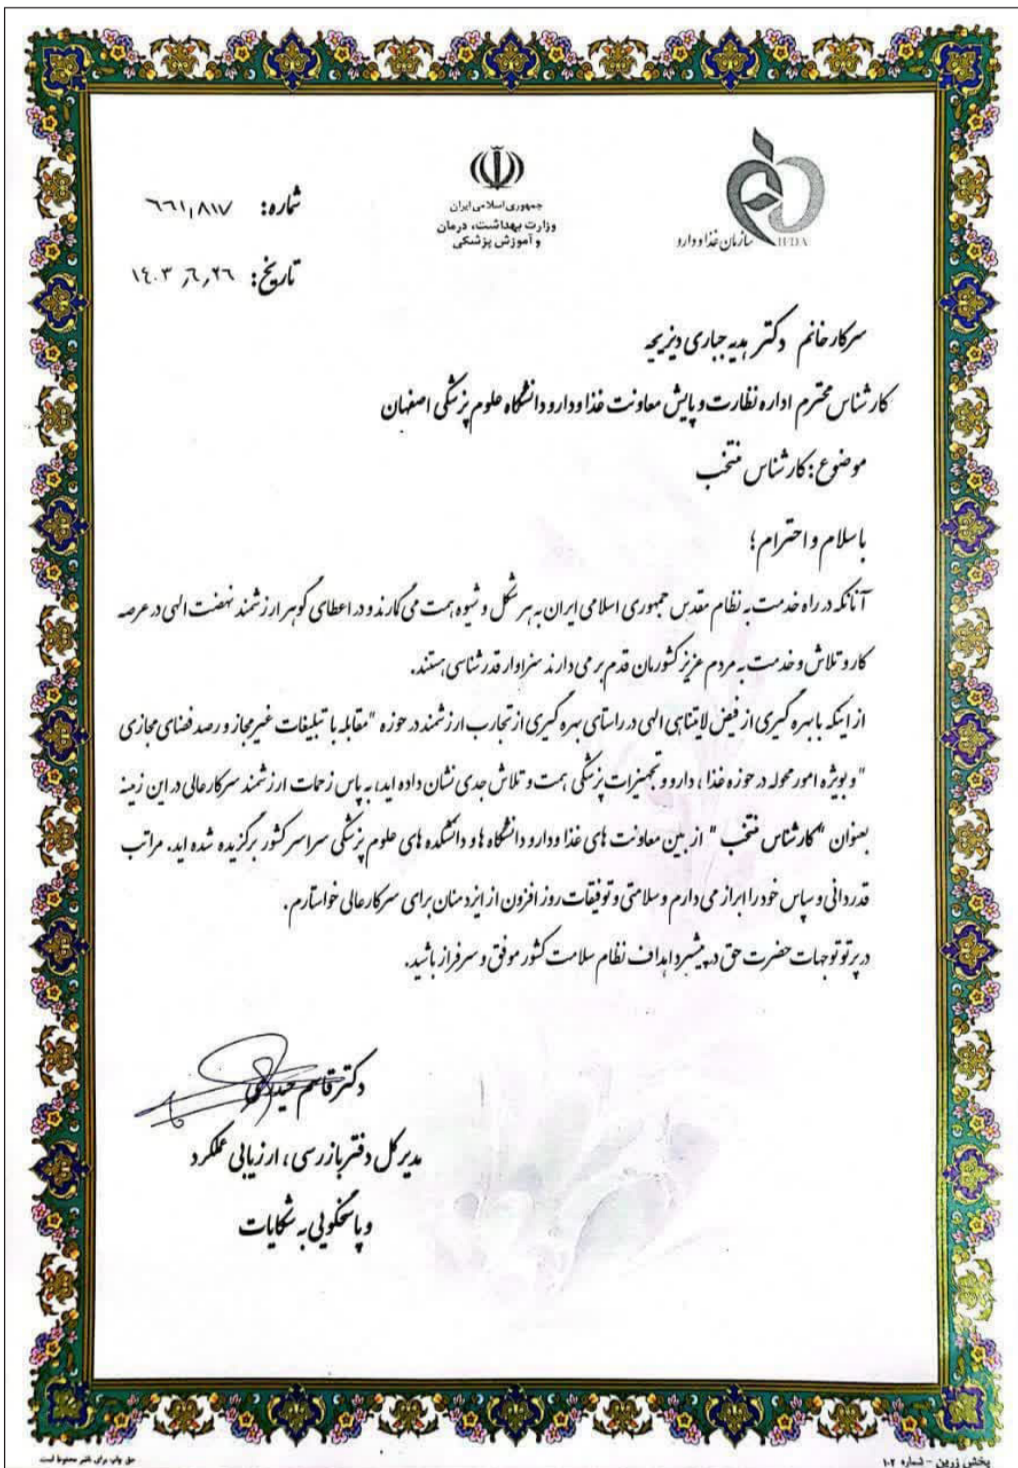 سازمان غذا و دارو
IFDA
جمهوری اسلامی ایران
وزارت بهداشت، درمان
و آموزش پزشکی
شماره: ۶۶۱,۸۱۷
تاریخ: ۱۴۰۳,۶,۲۶
سرکار خانم دکتر هدیه جباری دیزیچه
کارشناس محترم اداره نظارت و پایش معاونت غذا و دارو دانشگاه علوم پزشکی اصفهان
موضوع: کارشناس منتخب
باسلام و احترام؛
آنانکه در راه خدمت به نظام مقدس جمهوری اسلامی ایران به هر شکل و شیوه همت می گمارند و در اعطای گوهر ارزشمند نهضت الهی در عرصه
کار و تلاش و خدمت به مردم عزیز کشورمان قدم بر می دارند سزاوار قدرشناسی هستند.
از اینکه با بهره گیری از فیض لایتناهی الهی در راستای بهره گیری از تجارب ارزشمند در حوزه "مقابله با تبلیغات غیرمجاز و رصد فضای مجازی
" و بویژه امور محوله در حوزه غذا، دارو و تجهیزات پزشکی همت و تلاش جدی نشان داده اید، به پاس زحمات ارزشمند سرکارعالی در این زمینه
بعنوان "کارشناس منتخب" از بین معاونت های غذا و دارو دانشگاه ها و دانشکده های علوم پزشکی سراسر کشور برگزیده شده اید. مراتب
قدردانی و سپاس خود را ابراز می دارم و سلامتی و توفیقات روز افزون از ایزد منان برای سرکارعالی خواستارم.
در پرتو توجهات حضرت حق در پیشبرد اهداف نظام سلامت کشور موفق و سرفراز باشید.
دکتر قاسم
مدیرکل دفتر بازرسی، ارزیابی عملکرد
و پاسخگویی به شکایات
پخش زرین - شماره ۱۰۲
حق چاپ برای ناشر محفوظ است